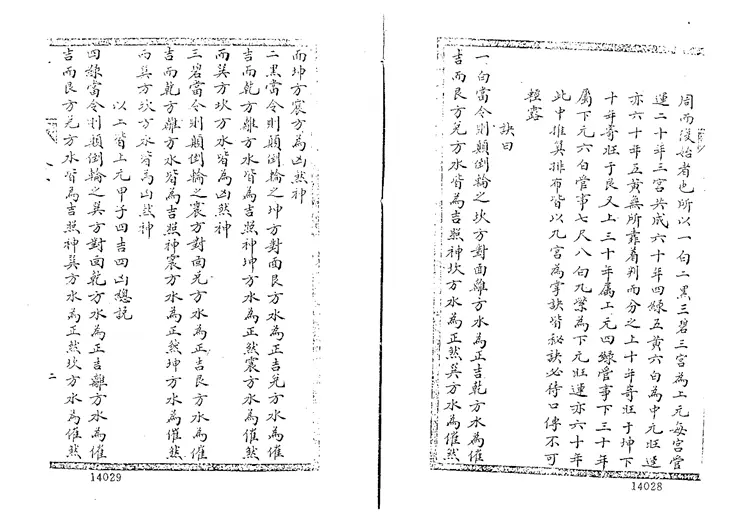 周而復始者也所以一白二黑三碧三宮為上元每宮管
運二十年三宮共成六十年四綠五黃六白為中元旺運
亦六十年五黃無所靠着判而分之上十年寄旺于坤下
十年寄旺于艮又上三十年属上元四綠管事下三十年
屬下元六白管事七尺八白九紫為下元旺運亦六十年
此中推算排布皆以九宮為掌訣皆秘訣必待口傳不可
輕露
訣曰
一白當令則顛倒輪之坎方對面離方水為正吉乾方水為催
吉而艮方兌方水皆為吉照神坎方水為正煞巽方水為催煞
14028
而坤方震方為凶煞神
二黑當令則顛倒輪之坤方對面艮方水為正吉兌方水為催
吉而乾方離方水皆為吉照神坤方水為正煞震方水為催煞
而巽方坎方水皆為凶煞神
三碧當令則顛倒輪之震方對面兌方水為正吉艮方水為催
吉而乾方離方水皆為吉照神震方水為正煞坤方水為催煞
而巽方坎方水皆為凶煞神
以上皆上元甲子四吉四凶總說
四綠當令則顛倒輪之巽方對面乾方水為正吉離方水為催
吉而艮方兌方水皆為吉照神巽方水為正煞坎方水為催煞
二
14029